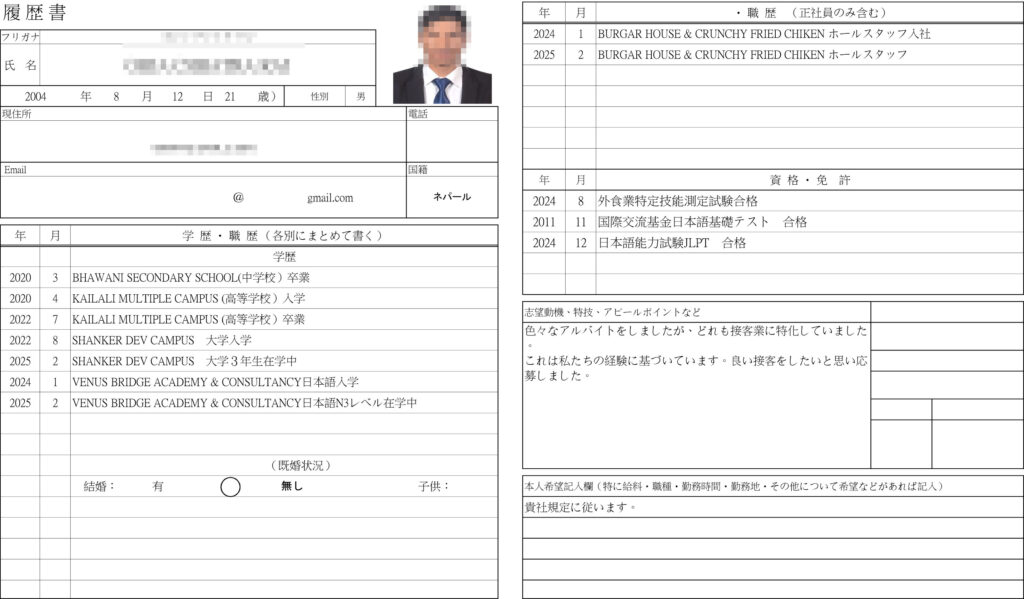 履歴書
フリガナ
氏 名
2004 年 8 月 12 日 21 歳）
性別 男
現住所
電話
Email
@ gmail.com
国籍
ネパール
年 月 学 歴・職 歴（各別にまとめて書く）
学歴
2020 3 BHAWANI SECONDARY SCHOOL(中学校）卒業
2020 4 KAILALI MULTIPLE CAMPUS (高等学校）入学
2022 7 KAILALI MULTIPLE CAMPUS (高等学校）卒業
2022 8 SHANKER DEV CAMPUS 大学入学
2025 2 SHANKER DEV CAMPUS 大学３年生在学中
2024 1 VENUS BRIDGE ACADEMY & CONSULTANCY日本語入学
2025 2 VENUS BRIDGE ACADEMY & CONSULTANCY日本語N3レベル在学中
（既婚状況）
結婚： 有 無し 子供：
年 月 ・職 歴 （正社員のみ含む）
2024 1 BURGAR HOUSE & CRUNCHY FRIED CHIKEN ホールスタッフ入社
2025 2 BURGAR HOUSE & CRUNCHY FRIED CHIKEN ホールスタッフ
年 月 資 格・免 許
2024 8 外食業特定技能測定試験合格
2011 11 国際交流基金日本語基礎テスト 合格
2024 12 日本語能力試験JLPT 合格
志望動機、特技、アピールポイントなど
色々なアルバイトをしましたが、どれも接客業に特化していました
。
これは私たちの経験に基づいています。良い接客をしたいと思い応
募しました。
本人希望記入欄（特に給料・職種・勤務時間・勤務地・その他について希望などがあれば記入）
貴社規定に従います。